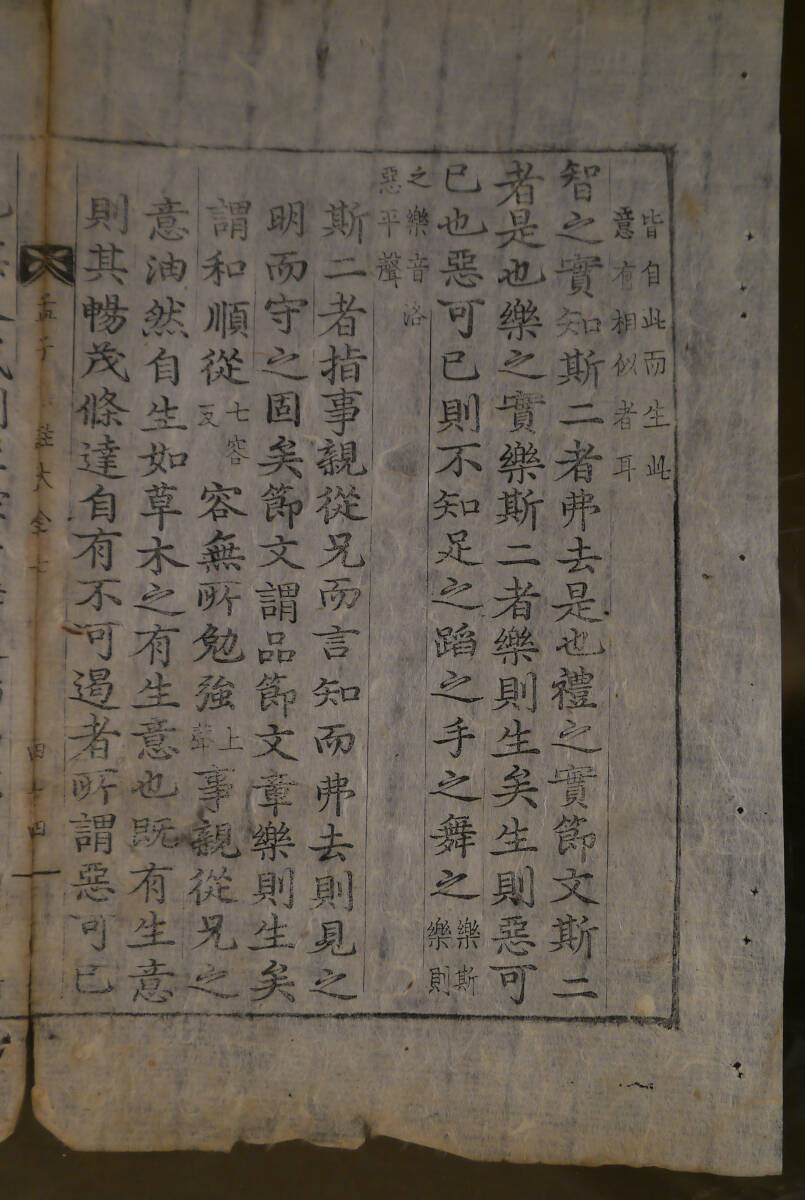 皆自此而生此
意有相似者耳
智之實知斯二者弗去是也禮之實節文斯二
者是也樂之實樂斯二者樂則生矣生則惡可
已也惡可已則不知足之蹈之手之舞之樂斯
樂則
之樂音洛
惡平聲
斯二者指事親從兄而言知而弗去則見之
明而守之固矣節文謂品節文章樂則生矣
謂和順從七容
反容無所勉強上
聲事親從兄之
意油然自生如草木之有生意也既有生意
則其暢茂條達自有不可遏者所謂惡可已
孟子 註大全七 四十四